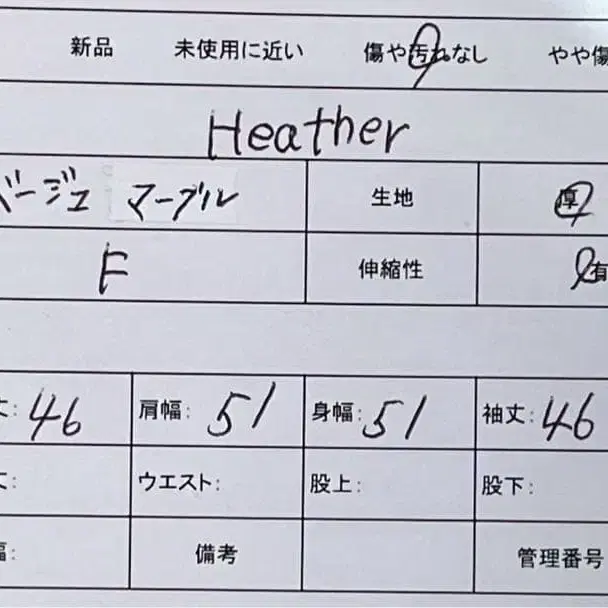 新品 未使用に近い 傷や汚れなし やや傷
Heather
ベージュ マーブル 生地 厚
F 伸縮性 有
丈: 46 肩幅: 51 身幅: 51 袖丈: 46
丈: ウエスト: 股上: 股下:
幅: 備考 管理番号